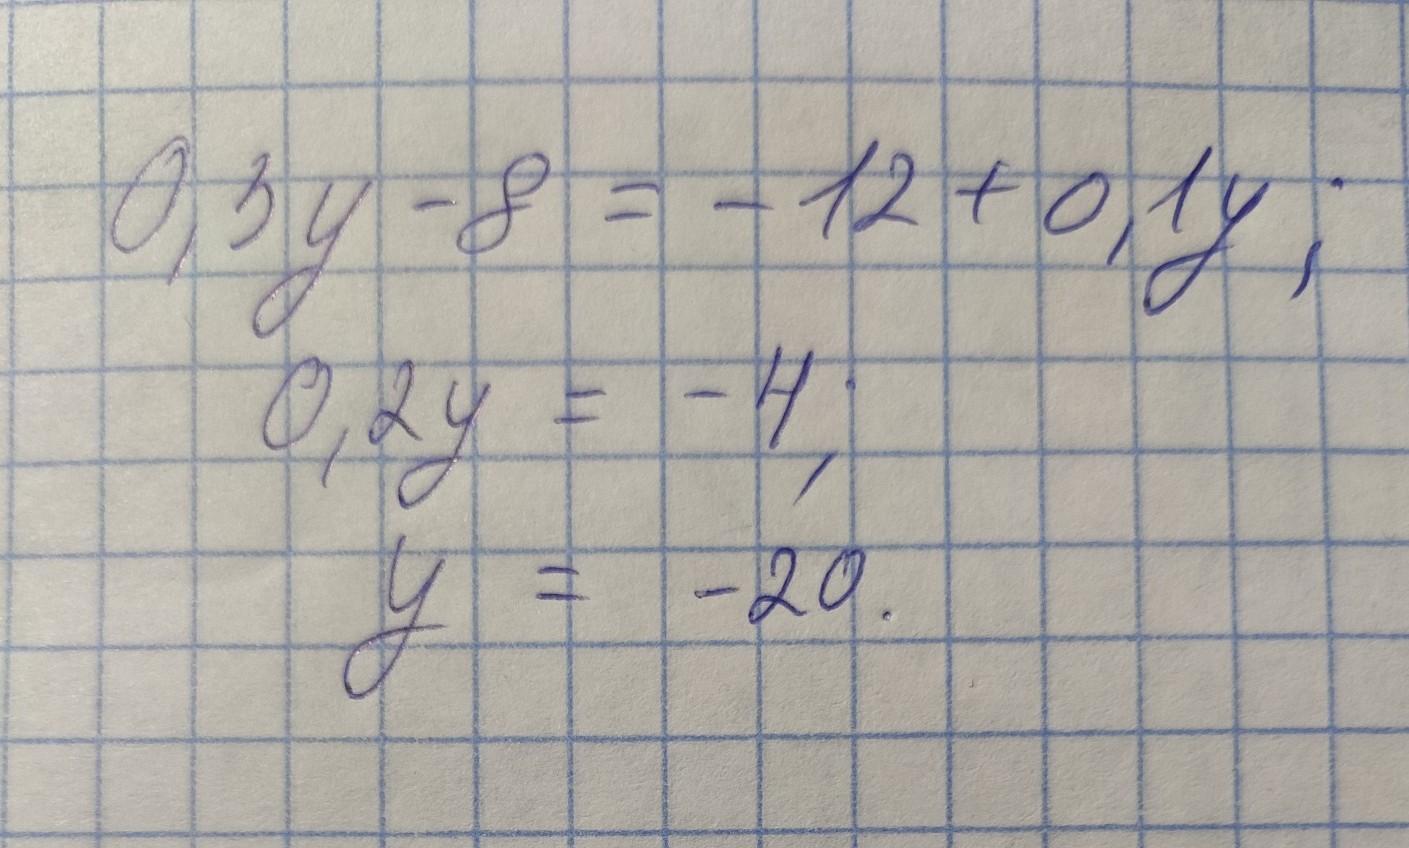 0,3y - 8 = - 12 + 0,1y ;
0,2y = - 4 ;
y = - 20 .